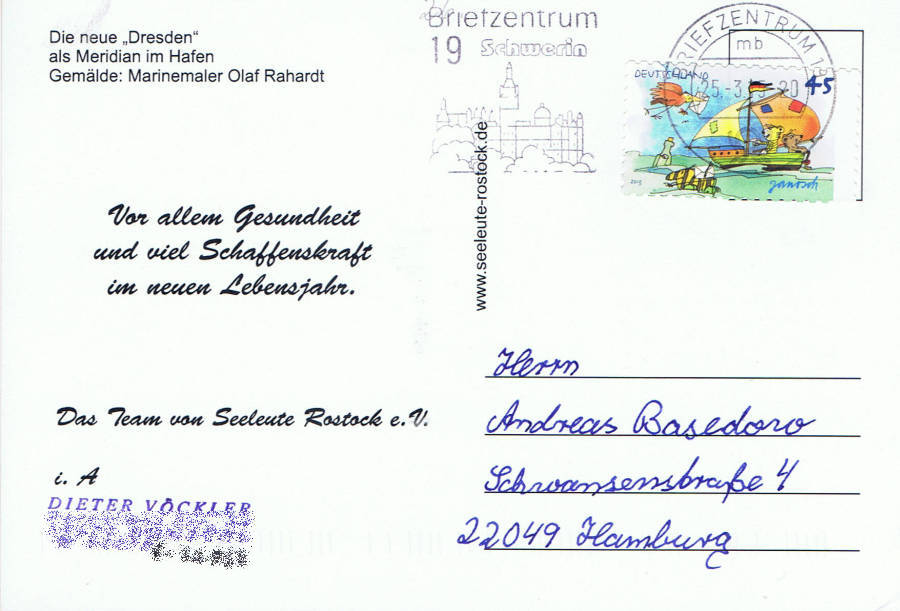 Die neue „Dresden“
als Meridian im Hafen
Gemälde: Marinemaler Olaf Rahardt
Briefzentrum
19 Schwerin
BRIEFZENTRUM
mb
DEUTSCHLAND
45
2013
janosch
www.seeleute-rostock.de
Vor allem Gesundheit
und viel Schaffenskraft
im neuen Lebensjahr.
Das Team von Seeleute Rostock e.V.
i. A
DIETER VÖCKLER
Herrn
Andreas Basedow
Schwansenstraße 4
22049 Hamburg